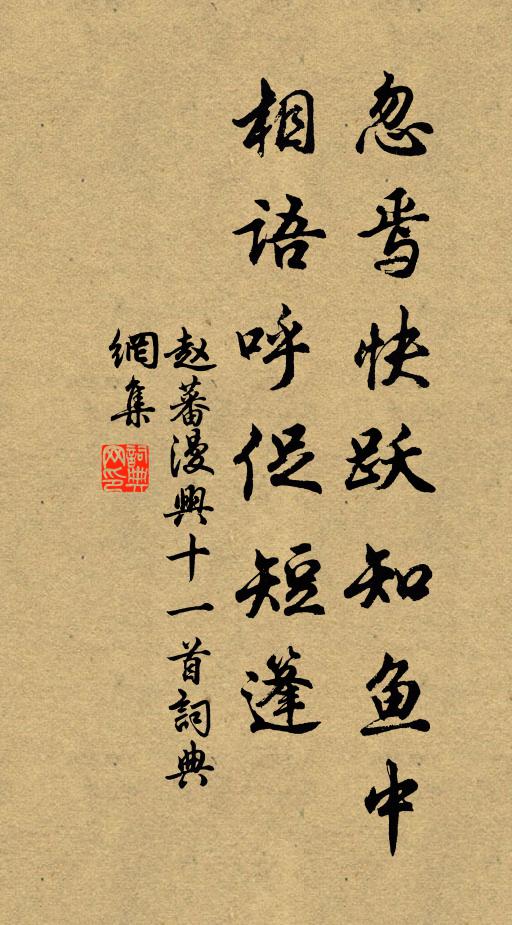 忽焉快跃知鱼中
相语呼促短篷
赵蕃漫興十一首詞典
網集
詞典網印